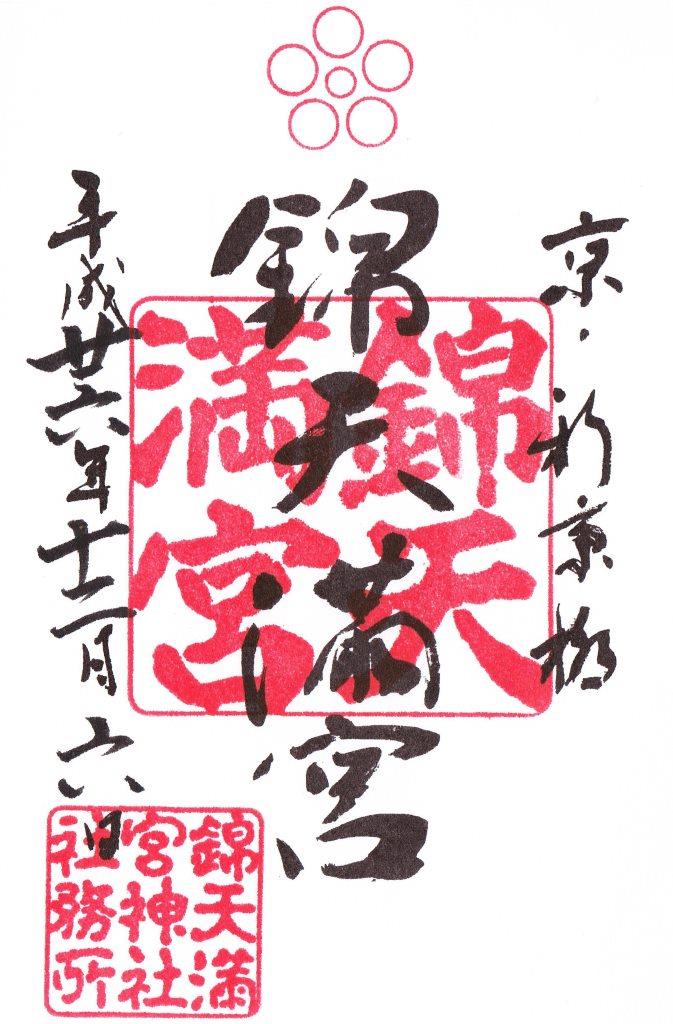 京・新京極
錦天満宮
錦天
満宮
平成廿六年十二月六日
錦天満
宮神社
社務所